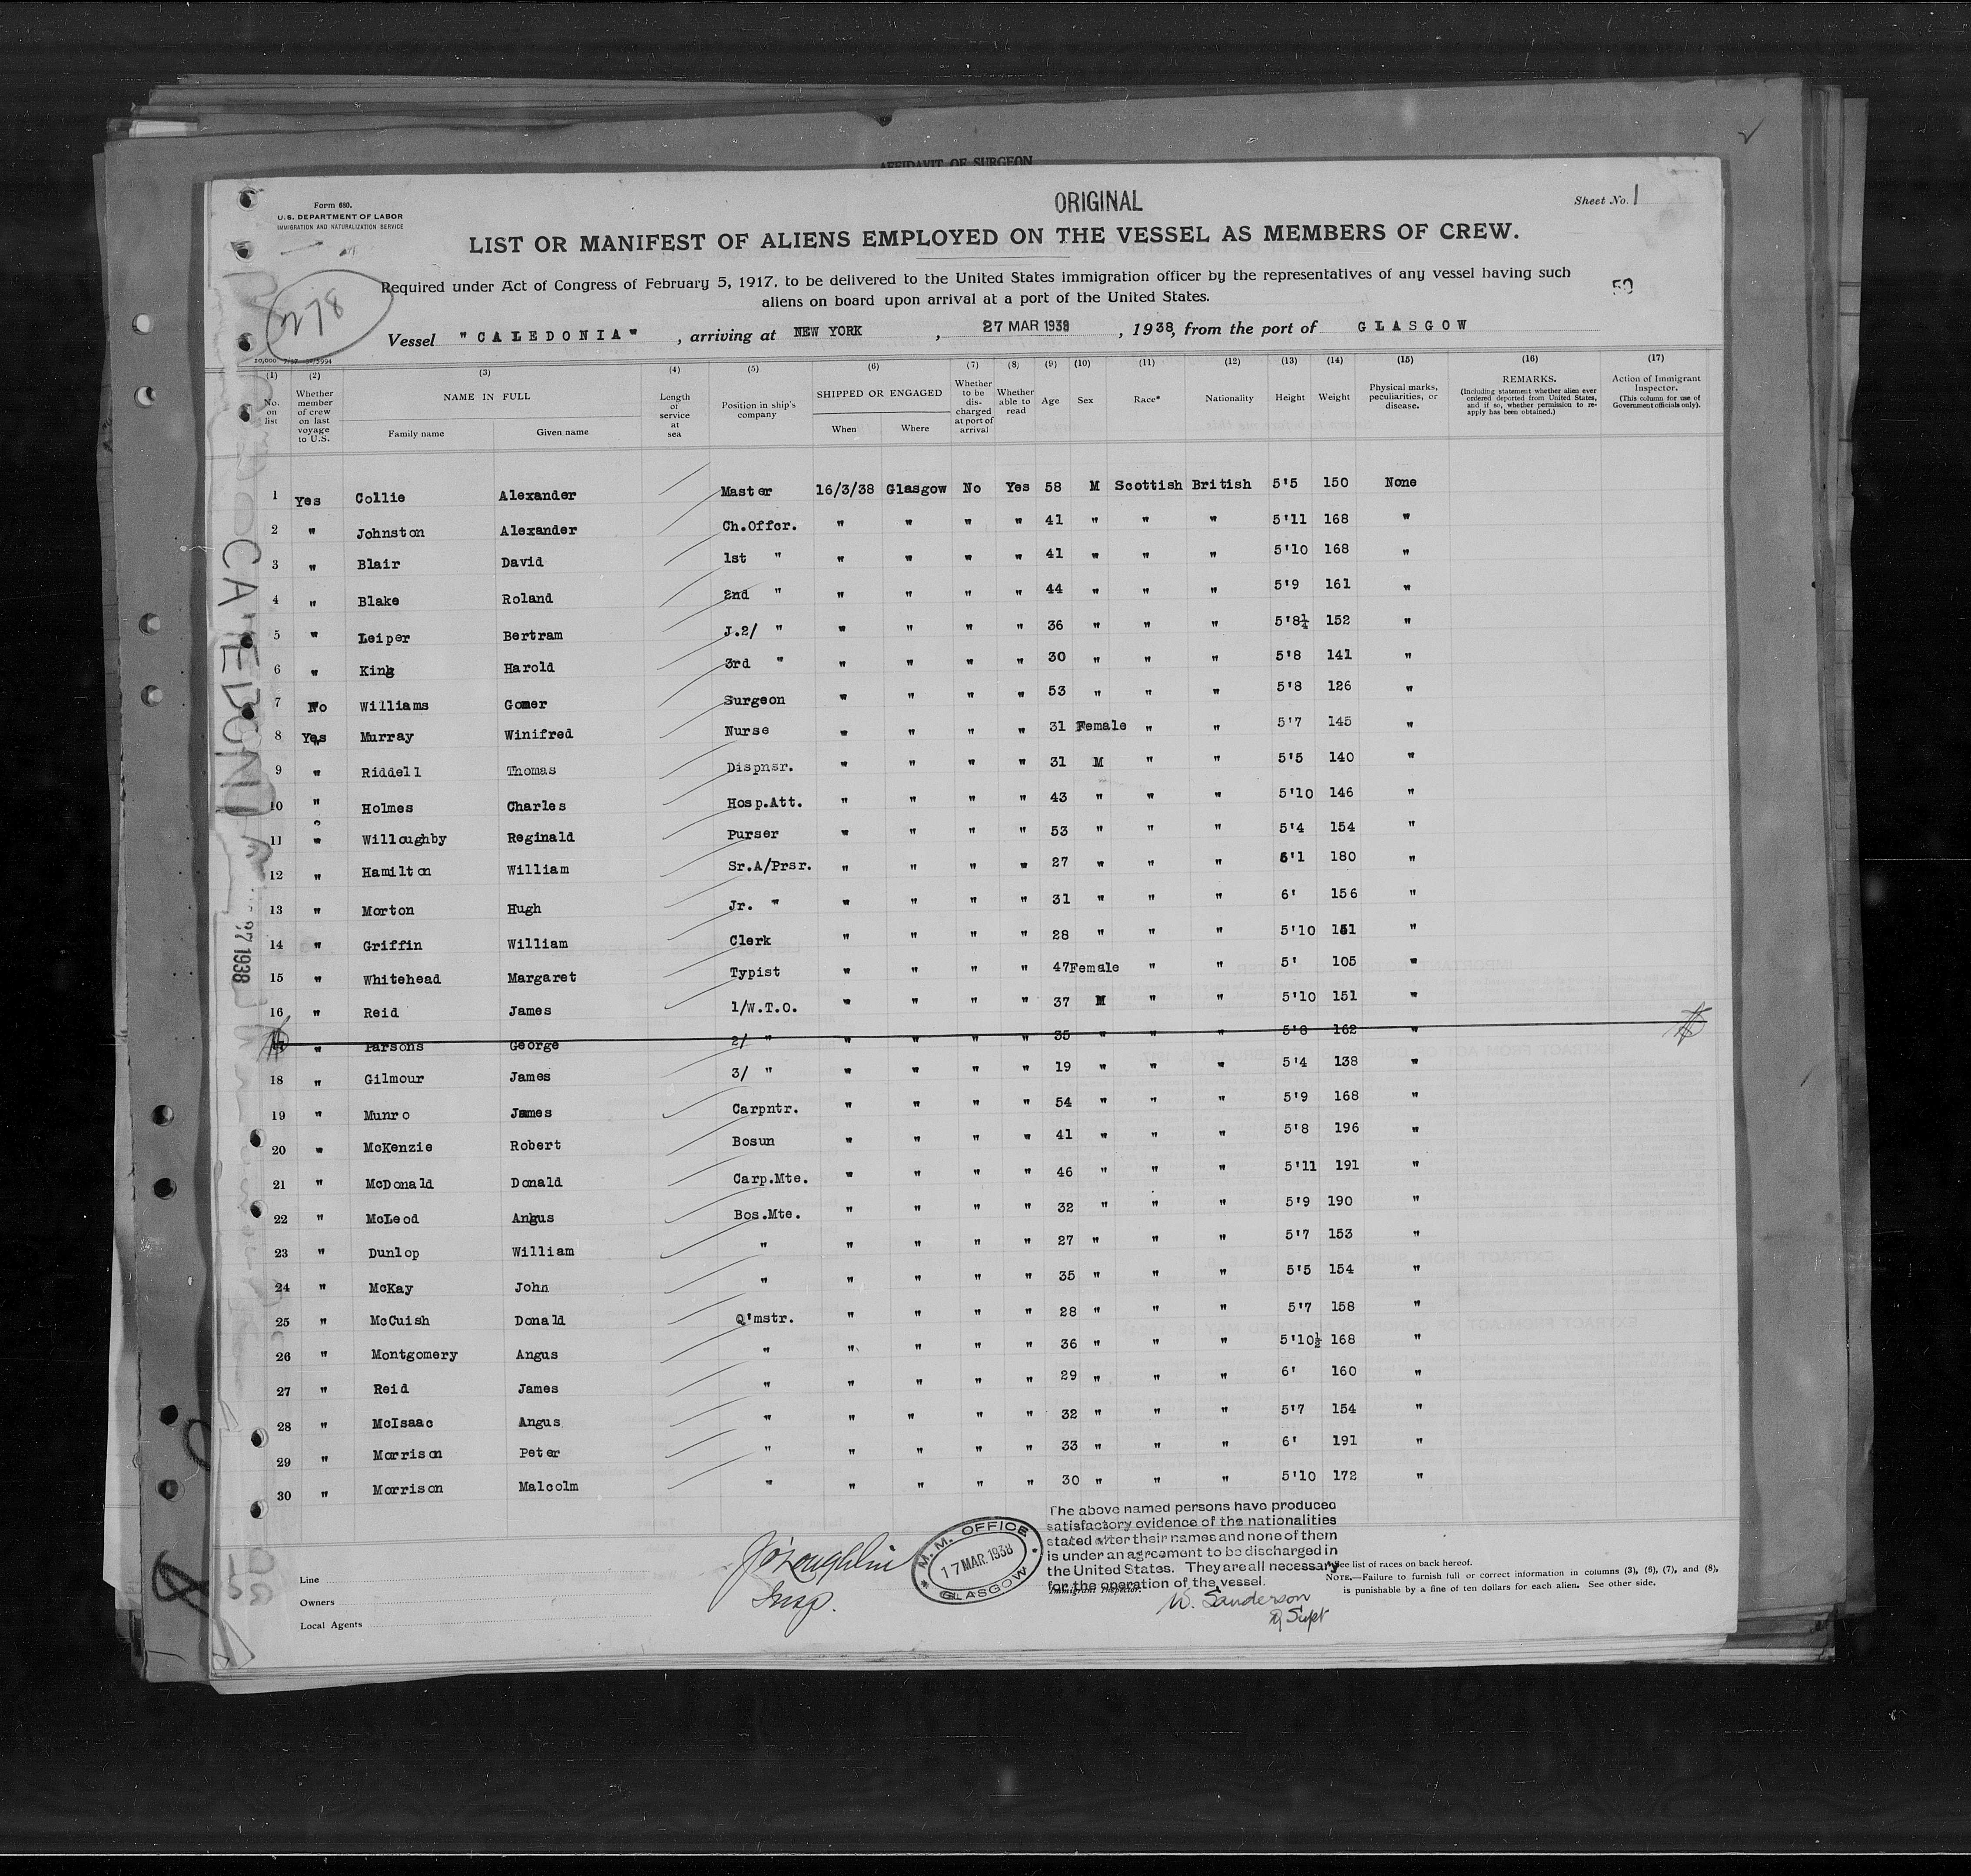 AFFIDAVIT OF SURGEON
ORIGINAL
Sheet No. 1
Form 680.
U.S. DEPARTMENT OF LABOR
IMMIGRATION AND NATURALIZATION SERVICE
LIST OR MANIFEST OF ALIENS EMPLOYED ON THE VESSEL AS MEMBERS OF CREW.
Required under Act of Congress of February 5, 1917, to be delivered to the United States immigration officer by the representatives of any vessel having such
aliens on board upon arrival at a port of the United States.
50
278
Vessel "CALEDONIA", arriving at NEW YORK, 27 MAR 1938, 1938, from the port of GLASGOW
(1) (2) (3) (4) (5) (6) (7) (8) (9) (10) (11) (12) (13) (14) (15) (16) (17)
No. on list | Whether member of crew on last voyage to U.S. | NAME IN FULL Family name Given name | Length of service at sea | Position in ship's company | SHIPPED OR ENGAGED When Where | Whether to be discharged at port of arrival | Whether able to read | Age | Sex | Race* | Nationality | Height | Weight | Physical marks, peculiarities, or disease. | REMARKS. (Including statement whether alien ever ordered deported from United States, and if so, whether permission to reapply has been obtained.) | Action of Immigrant Inspector. (This column for use of Government officials only).
1 Yes Collie Alexander Master 16/3/38 Glasgow No Yes 58 M Scottish British 5'5 150 None
2 " Johnston Alexander Ch.Offcr. " " " " 41 " " " 5'11 168 "
3 " Blair David 1st " " " " " 41 " " " 5'10 168 "
4 " Blake Roland 2nd " " " " " 44 " " " 5'9 161 "
5 " Leiper Bertram J.2/ " " " " " 36 " " " 5'8¼ 152 "
6 " King Harold 3rd " " " " " 30 " " " 5'8 141 "
7 No Williams Gomer Surgeon " " " " 53 " " " 5'8 126 "
8 Yes Murray Winifred Nurse " " " " 31 Female " " 5'7 145 "
9 " Riddell Thomas Dispnsr. " " " " 31 M " " 5'5 140 "
10 " Holmes Charles Hosp.Att. " " " " 43 " " " 5'10 146 "
11 " Willoughby Reginald Purser " " " " 53 " " " 5'4 154 "
12 " Hamilton William Sr.A/Prsr. " " " " 27 " " " 6'1 180 "
13 " Morton Hugh Jr. " " " " " 31 " " " 6' 156 "
14 " Griffin William Clerk " " " " 28 " " " 5'10 151 "
15 " Whitehead Margaret Typist " " " " 47 Female " " 5' 105 "
16 " Reid James 1/W.T.O. " " " " 37 M " " 5'10 151 "
17 " Parsons George 2/ " " " " " 35 " " " 5'8 162 "
18 " Gilmour James 3/ " " " " " 19 " " " 5'4 138 "
19 " Munro James Carpntr. " " " " 54 " " " 5'9 168 "
20 " McKenzie Robert Bosun " " " " 41 " " " 5'8 196 "
21 " McDonald Donald Carp.Mte. " " " " 46 " " " 5'11 191 "
22 " McLeod Angus Bos.Mte. " " " " 32 " " " 5'9 190 "
23 " Dunlop William " " " " " 27 " " " 5'7 153 "
24 " McKay John " " " " " 35 " " " 5'5 154 "
25 " McCuish Donald Q'mstr. " " " " 28 " " " 5'7 158 "
26 " Montgomery Angus " " " " " 36 " " " 5'10½ 168 "
27 " Reid James " " " " " 29 " " " 6' 160 "
28 " McIsaac Angus " " " " " 32 " " " 5'7 154 "
29 " Morrison Peter " " " " " 33 " " " 6' 191 "
30 " Morrison Malcolm " " " " " 30 " " " 5'10 172 "
The above named persons have produced
satisfactory evidence of the nationalities
stated after their names and none of them
is under an agreement to be discharged in
the United States. They are all necessary
for the operation of the vessel.
W. Sanderson
Immigrant Inspector.
J O'Loughlin
Insp.
M. M. OFFICE
17 MAR. 1938
GLASGOW
Line
Owners
Local Agents
*See list of races on back hereof.
NOTE.—Failure to furnish full or correct information in columns (3), (6), (7), and (8),
is punishable by a fine of ten dollars for each alien. See other side.
CALEDONIA
1938